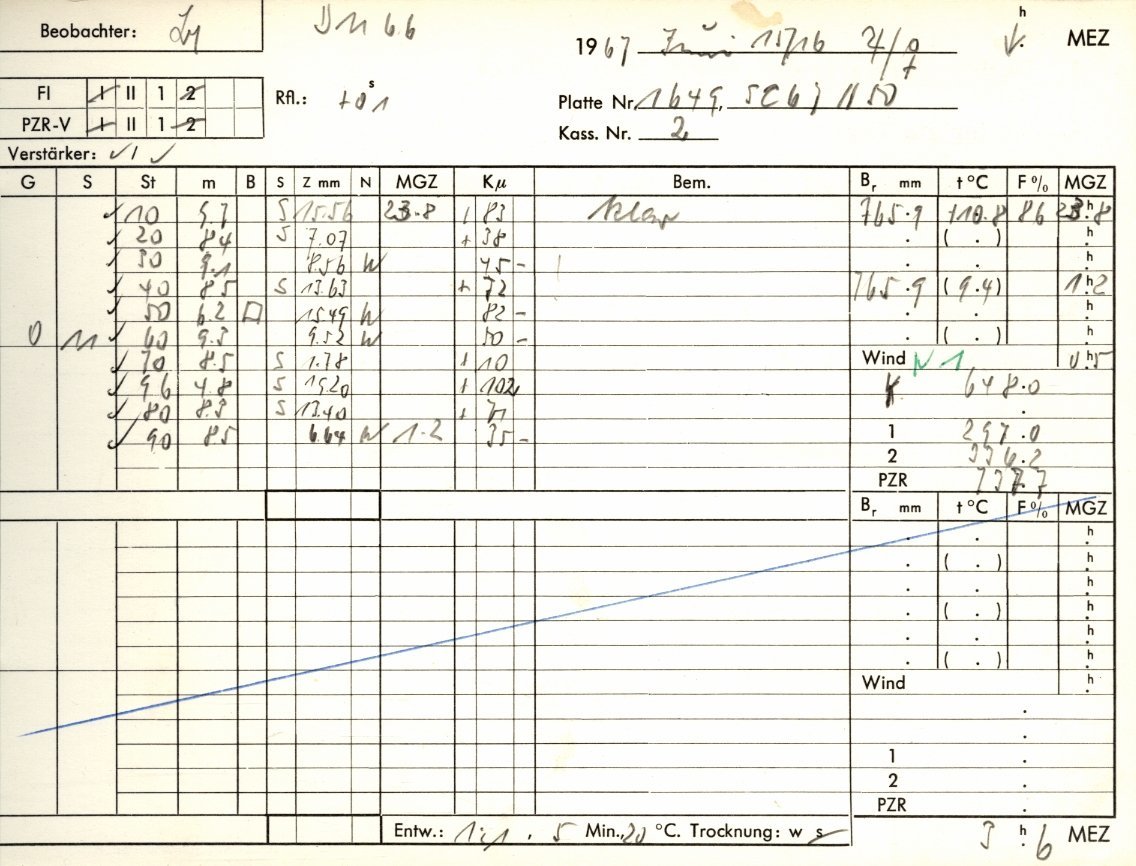 Beobachter:
1967 Juni 15/16 h MEZ
FI I II 1 2 Rfl.: +0s1
Platte Nr. 1649,
PZR-V I II 1 2
Kass. Nr. 2
Verstärker: ✓ / ✓
G S St m B S Z mm N MGZ Kμ Bem. Br mm t °C F% MGZ
✓ 10 5.7 S 15.56 23.8 + 83 klar 765.9 +10.8 86 23.h8
✓ 20 8.4 S 7.07 + 38 . ( . ) h.
✓ 30 9.1 8.56 W 45 - . . h.
✓ 40 8.5 S 13.63 + 72 765.9 (9.4) 1.h2
✓ 50 6.2 15.49 W 82 - . . h.
0 11 ✓ 60 9.3 9.52 W 50 - . ( . ) h.
✓ 70 8.5 S 1.78 + 10 Wind N 1 0.h5
✓ 96 4.8 S 19.20 + 102 K 648.0
✓ 80 8.3 S 13.40 + 71 .
✓ 90 8.5 6.64 W 1.2 35 - 1 297.0
2 336.2
PZR
Br mm t °C F% MGZ
. . h.
. ( . ) h.
. . h.
. ( . ) h.
. . h.
. ( . ) h.
Wind h.
.
.
1 .
2 .
PZR .
Entw.: 1:1, 5 Min., 20 °C. Trocknung: w s 3 h. 6 MEZ